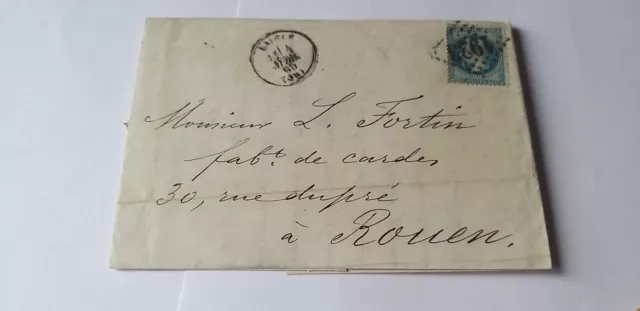 Monsieur L. Fortin
fabt. de cardes
30, rue dupré
à Rouen.